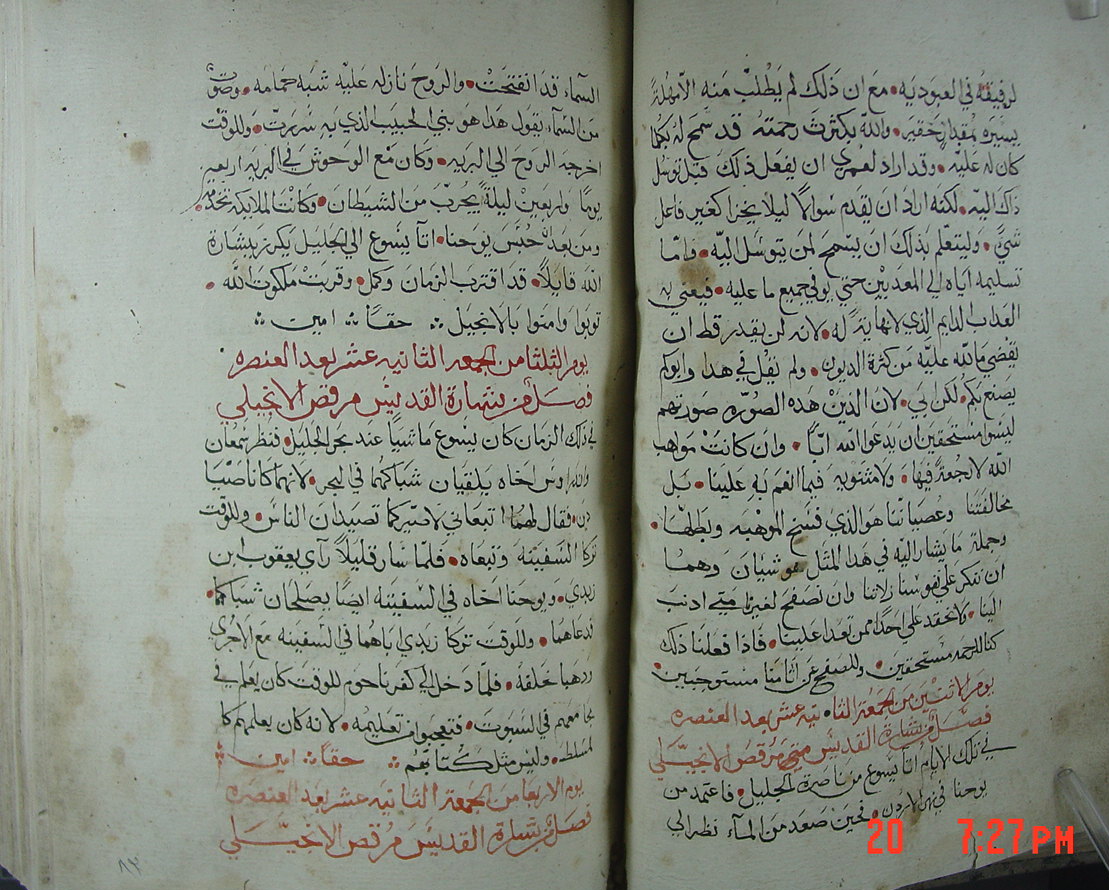 لرفيقه في العبوديه • مع ان ذلك لم يطلب منه الا مهلة
يسيره بمقدار حقير • والله بكثرت رحمته قد سمح له بكلما
كان له عليه • وقد اراد لعمري ان يفعل ذلك قبل توسل
ذاك اليه • لكنه اراد ان يقدم سوالا ليلا يجزا كغير فاعل
شيئ • وليتعلم بذلك ان يسمح لمن يتوسل اليه • واما
تسليمه اياه الى المعذبين حتي يوفي جميع ما عليه • فيعني به
العداب الدايم الذي لا نهاية له • لانه لن يقدر قط ان
يقضي ما لله عليه من كثرة الديون • ولم يقل في هدا وابوكم
يصنع بكم • لكن ابي • لان الدين هده الصوره صورتهم
ليس مستحقين ان يدعوا الله ابًا • وان كانت مواهب
الله لا رجعة فيها • ولا مثنويه فيما انعم به علينا • بل
مخالفتنا وعصياننا هو الذي فسخ الموهبه وبطلها •
وجملة ما يشار اليه في هدا المثل هو شيان وهما
ان نتفكر على نفوسنا زلاتنا وان نصفح لغيرنا متي ادنب
الينا • ولا نحقد علي احدًا ممن تعدا علينا • فادا فعلنا ذلك
كنا للرحمه مستحقين • وللصفح عن اثامنا مستوجبين •
يوم الاثنين من الجمعة الثانيه عشر بعد العنصره
فصل من بشارة القديس متي مرقص الانجيلي
في تلك الايام اتا يسوع من ناصرة الجليل • فاعتمد من
يوحنا في نهر الاردن • فحين صعد من الماء نظر الي
السماء قد انفتحت • والروح نازله عليه شبه حمامه • وصوت
من السماء يقول هدا هو بني الحبيب الذي به سررت • وللوقت
اخرجه الروح الي البريه • وكان مع الوحوش في البريه اربعين
يومًا واربعين ليلةً يجرب من الشيطان • وكانت الملايكه تخدمه •
ومن بعد حبس يوحنا • اتا يسوع الي الجليل يكرز ببشارة
الله قايلاً • قد اقترب الزمان وكمل • وقربت ملكوت الله •
توبوا وامنوا بالانجيل ܀ حقًا ܀ امين ܀
يوم الثلثا من الجمعه الثانيه عشر بعد العنصره
فصل من بشارة القديس مرقص الانجيلي
في ذلك الزمان كان يسوع ماشيًا عند بحر الجليل • فنظر سمعان
واندراوس اخاه يلقيان شباكهما في البحر • لانهما كانا صيا
دين • فقال لهما اتبعاني لاصيركما تصيدان الناس • وللوقت
تركا السفينه وتبعاه • فلما سار قليلاً راي يعقوب ابن
زبدي • ويوحنا اخاه في السفينه ايضا يصلحان شباكهما •
فدعاهما • وللوقت تركا زبدي اباهما في السفينه مع الاجري
ودهبا خلفه • فلما دخل الي كفرناحوم للوقت كان يعلم في
مجامعهم في السبوت • فتعجبوا من تعليمه • لانه كان يعلمهم كا
لمسلط • وليس مثل كتابهم ܀ حقًا ܀ امين ܀
يوم الاربعا من الجمعة الثانيه عشر بعد العنصره
فصل من بشارة القديس مرقص الانجيلي
20 7:27 PM